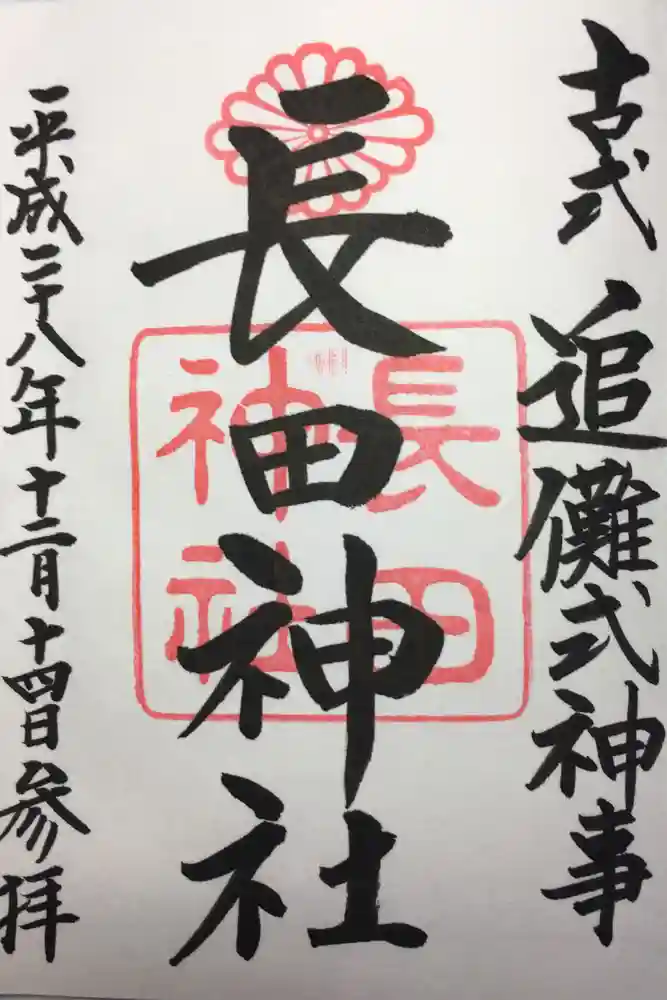 古式追儺式神事
長田神社
長田
神社
平成二十八年十二月十四日参拝